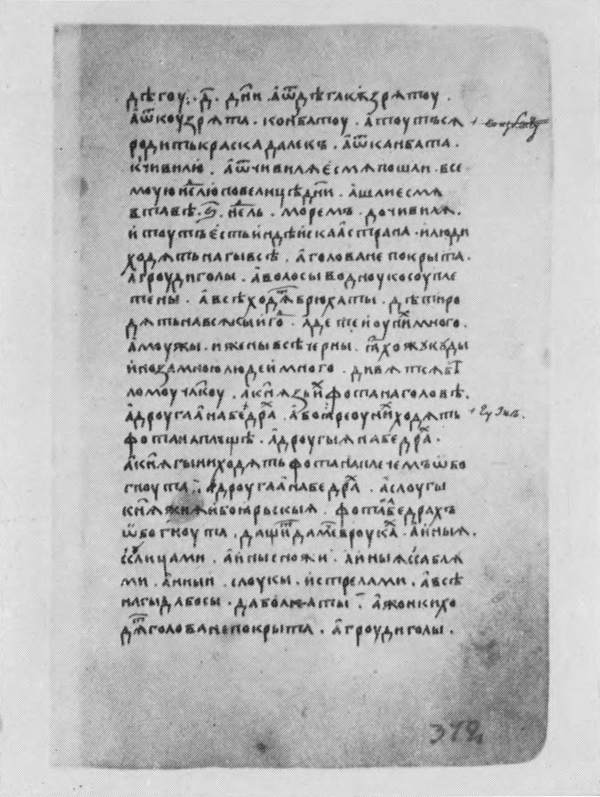 дѣгоу. д҃. дн҃и. а ѿ дѣгакѣзрятоу.
а ѿ коузрята. конбатоу. а тоутъся
родитькраскадалекъ. а ѿ канбата.
кчивилю. а ѿ чивиляесмяпошли. все
моуюнлюповелицѣдн҃и. ашлиесмя
втавѣ. ѕ҃. нл҃ь. моремъ. дочивиля.
итоутъестьиндѣйскаастрана. илюди
ходятьнагывсѣ. аголованепокрыта.
агроудиголы. аволосыводноукосоупле
тены. авсѣходятбрюхаты. дѣтиро
дятьнавсякыигⷣ. адетейоунихмного.
амоужы. иженывсѣчерны. ꙗзхожукуды
иноза мноюлюдеймного. дивятсябѣ
ломоучл҃коу. акнязьихфотанаголовѣ.
адроугаанабедрах. абояреоунихходять
фотанаплъщѣ. адроугыянабедрах.
акнягыниходятьфотанаплечемъѡбо
гноута. адроугаанабедрах. аслоугы
княжияибоярьскыя. фотанабедрахъ
ѡбогноута, дащитдамечвроуках. аиныя.
ссулицами. аиныесножи. аиныяссабля
ми. аиныи. слоукы. истрелами. авсѣ
нагыдабосы. даболкаты. ажонкихо
дятголованепокрыта. агроудиголы.
372